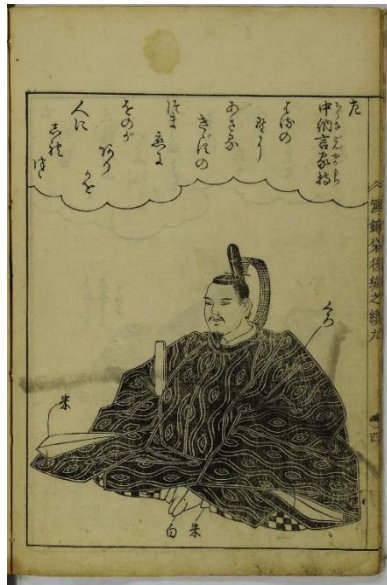 左
中納言家持
はるの
野に
あさる
きゞすの
つま
恋に
をのが
ありかを
人に
しれつゝ
くろ
朱
朱
白